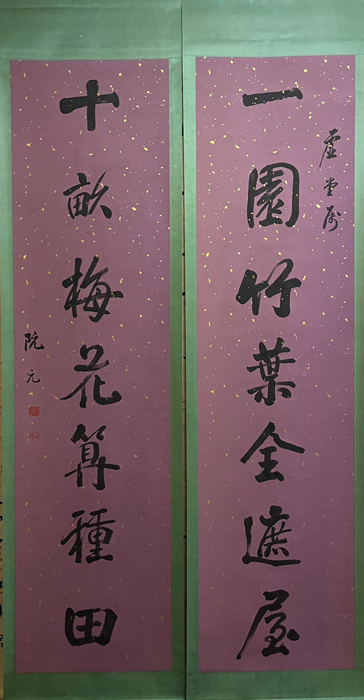 虛堂屬
一園竹葉全遮屋
十畝梅花算種田
阮元